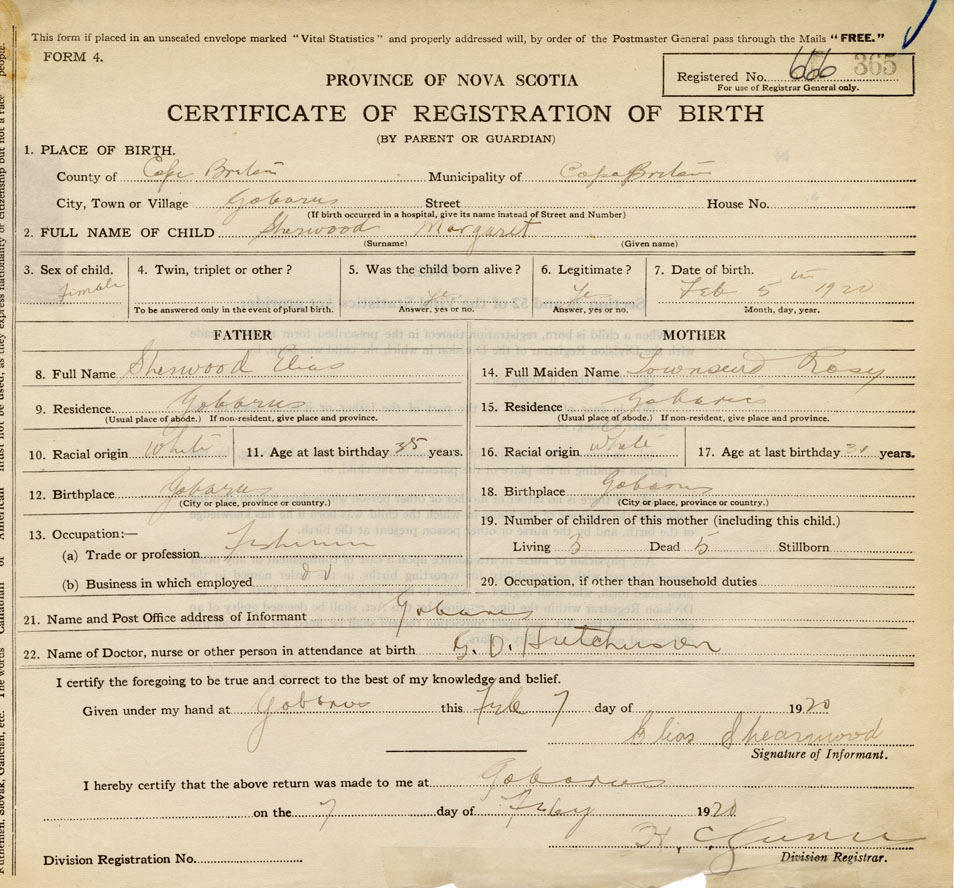 This form if placed in an unsealed envelope marked "Vital Statistics" and properly addressed will, by order of the Postmaster General pass through the Mails "FREE."
FORM 4.
Registered No. 666 365
For use of Registrar General only.
PROVINCE OF NOVA SCOTIA
CERTIFICATE OF REGISTRATION OF BIRTH
(BY PARENT OR GUARDIAN)
1. PLACE OF BIRTH.
County of Cape Breton Municipality of Cape Breton
City, Town or Village Gabarus Street House No.
(If birth occurred in a hospital, give its name instead of Street and Number)
2. FULL NAME OF CHILD Sherwood Margaret
(Surname) (Given name)
3. Sex of child. female
4. Twin, triplet or other?
To be answered only in the event of plural birth.
5. Was the child born alive? Yes
Answer, yes or no.
6. Legitimate? Yes
Answer, yes or no.
7. Date of birth. Feb 5th 1920
Month, day, year.
FATHER
8. Full Name Sherwood Elias
9. Residence. Gabarus
(Usual place of abode.) If non-resident, give place and province.
10. Racial origin White 11. Age at last birthday 35 years.
12. Birthplace Gabarus
(City or place, province or country.)
13. Occupation:—
(a) Trade or profession Fisherman
(b) Business in which employed
MOTHER
14. Full Maiden Name Townsend Rosy
15. Residence Gabarus
(Usual place of abode.) If non-resident, give place and province.
16. Racial origin White 17. Age at last birthday years.
18. Birthplace Gabarus
(City or place, province or country.)
19. Number of children of this mother (including this child.)
Living 5 Dead 5 Stillborn
20. Occupation, if other than household duties
21. Name and Post Office address of Informant Gabarus
22. Name of Doctor, nurse or other person in attendance at birth G. D. Hutcheson
I certify the foregoing to be true and correct to the best of my knowledge and belief.
Given under my hand at Gabarus this Feb 7 day of 1920
Elias Shearwood
Signature of Informant.
I hereby certify that the above return was made to me at Gabarus
on the 7 day of 1920
H. C.
Division Registrar.
Division Registration No.